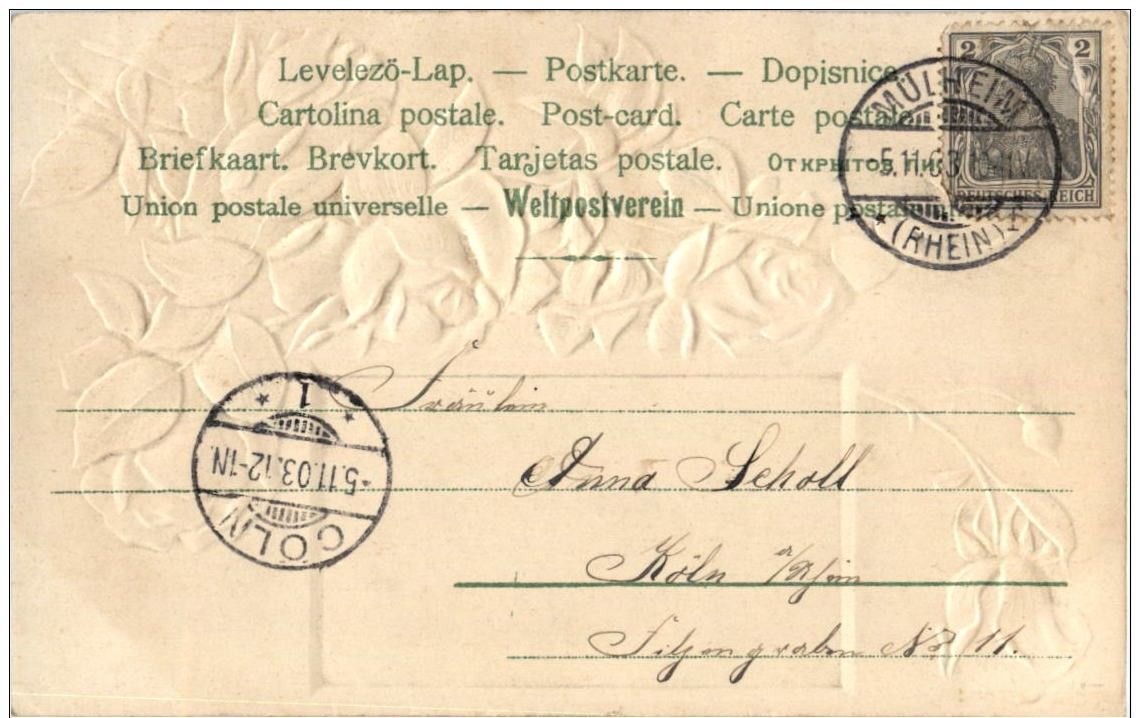 Levelezö-Lap. — Postkarte. — Dopisnice
Cartolina postale. Post-card. Carte postale.
Briefkaart. Brevkort. Tarjetas postale.
Union postale universelle — Weltpostverein — Unione postale
2 2
DEUTSCHES REICH
MÜLHEIM
5.11.03
* (RHEIN) *
Fräulein
Anna Scholl
Köln a/Rhein
Filzengraben No 11.
CÖLN
5.11.03.12-1N.
* 1 *